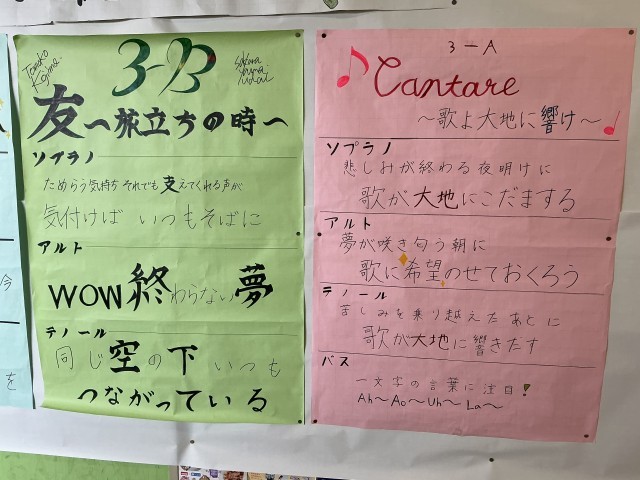 Tomoko
Kojima
3-B
友〜旅立ちの時〜
ソプラノ
ためらう気持ち それでも支えてくれる声が
気付けば いつもそばに
アルト
WOW終わらない夢
テノール
同じ空の下 いつも
つながっている
3-A
Cantare
〜歌よ大地に響け〜
ソプラノ
悲しみが終わる夜明けに
歌が大地にこだまする
アルト
夢が咲き匂う朝に
歌に希望のせておくろう
テノール
苦しみを乗り越えたあとに
歌が大地に響きだす
バス
一文字の言葉に注目!
Ah〜Ao〜Uh〜La〜
今
を